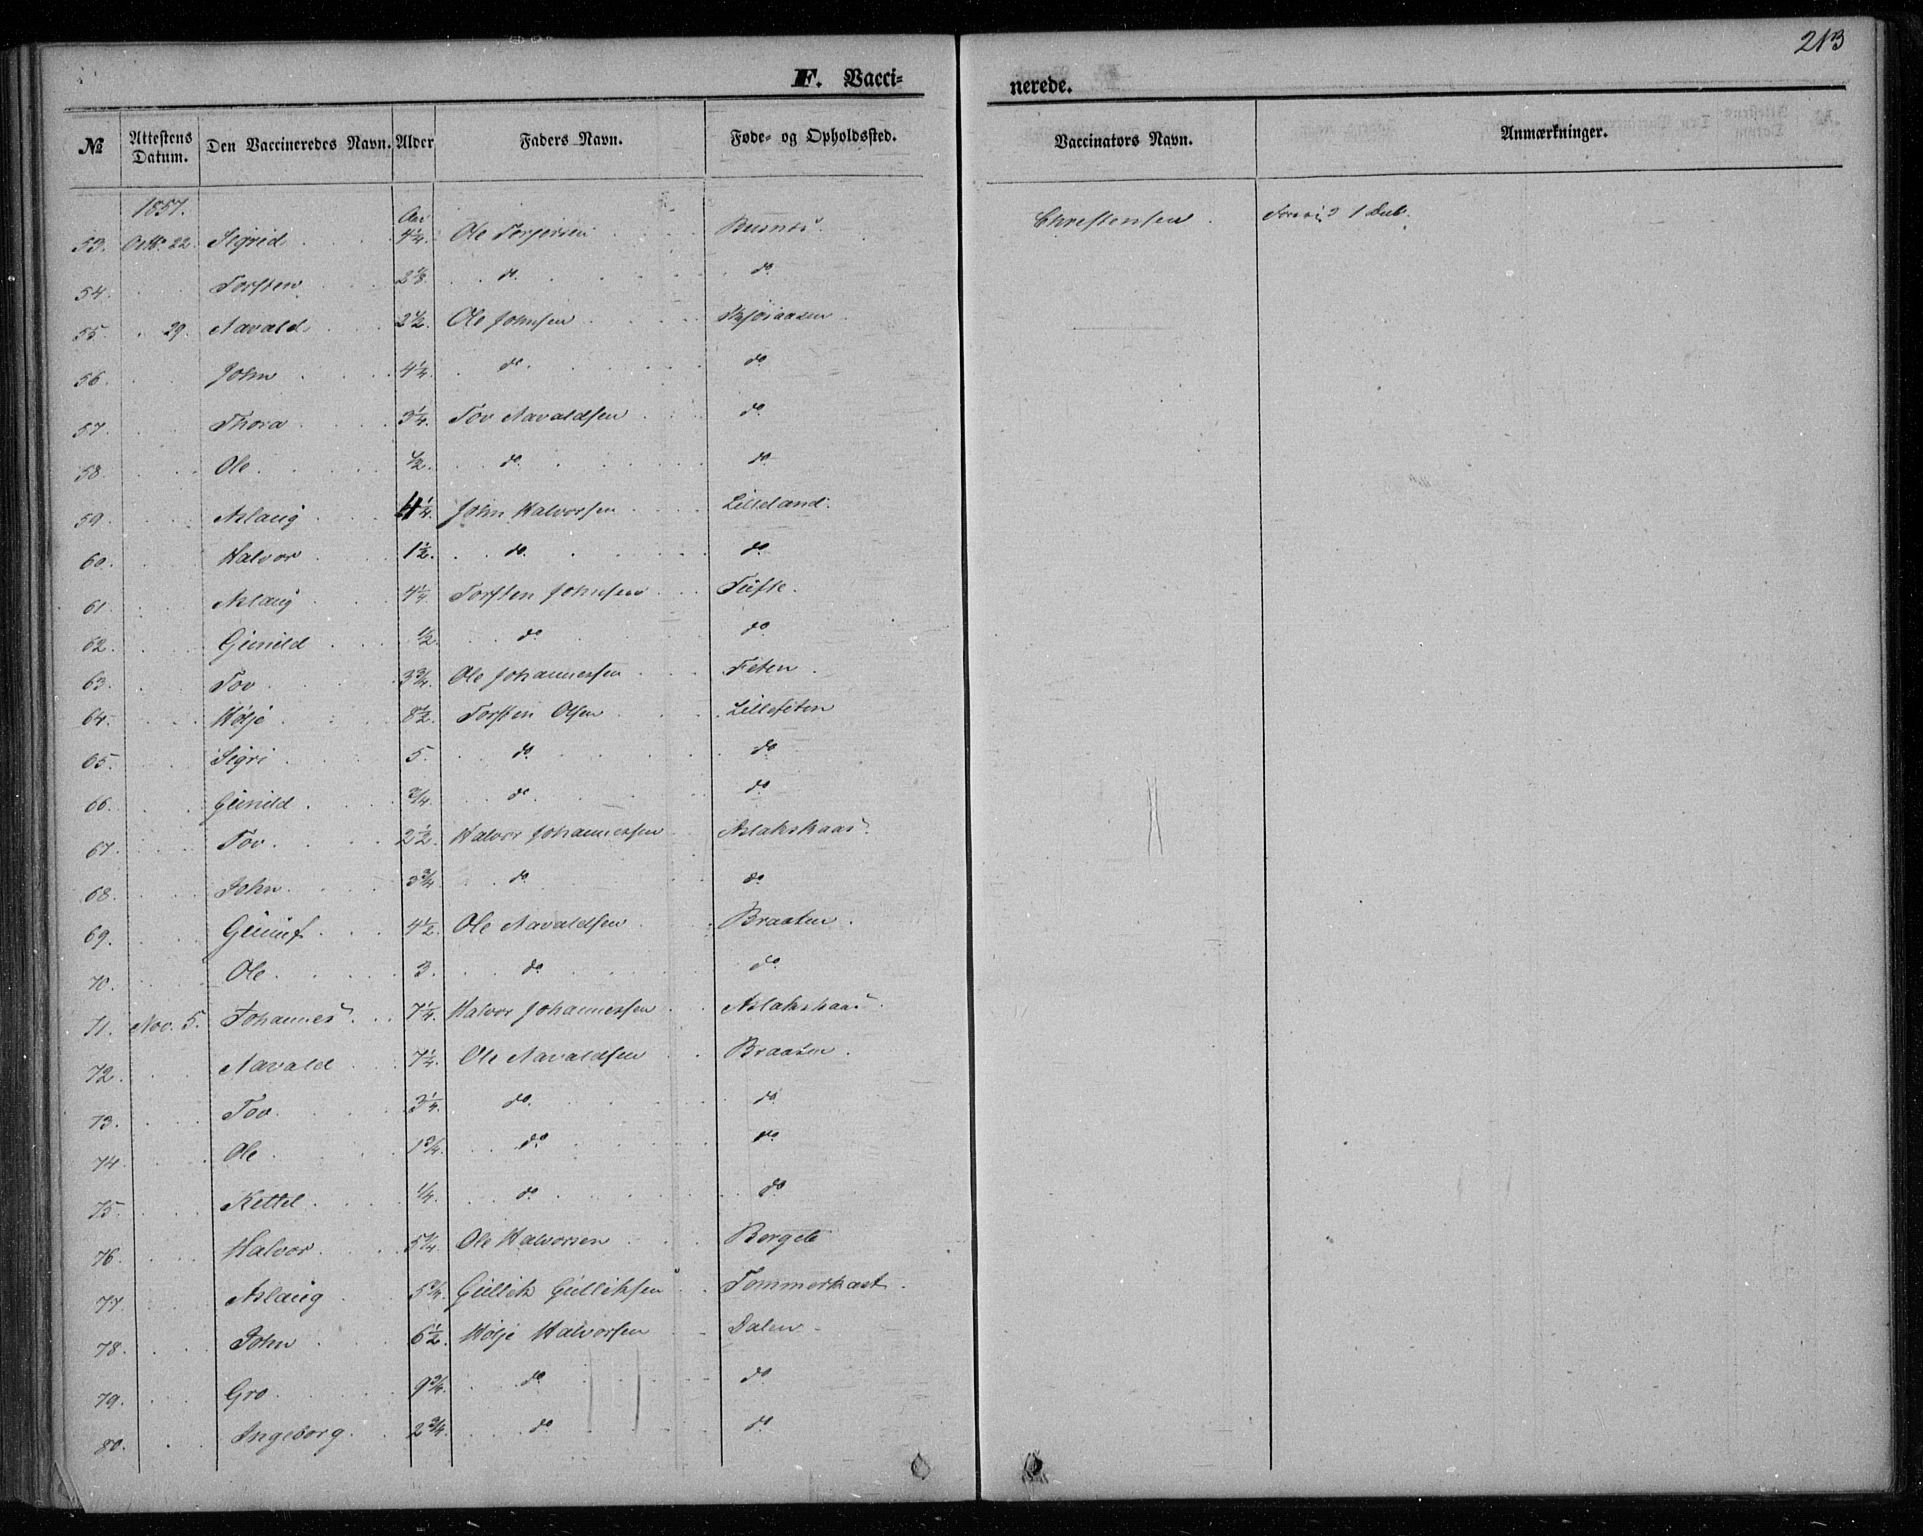 213
F. Vacci-
nerede.
№ Attestens Datum. Den Vaccineredes Navn. Alder Faders Navn. Føde- og Opholdssted. Vaccinators Navn. Anmærkninger.
1857.
53. Octbr. 22. Sigrid 4 1/4. Ole Torjersen Christensen
54. Torsten do do
55. 29. Aavald 2 1/2. Ole Johnsen
56. John 4 1/4. do do
57. Thora 3 1/4. Tov Aavaldsen do
58. Ole 1/2. do do
59. Aslaug 4 1/4. John Halvorsen Lilleland.
60. Halvor 1 1/2. do do
61. Aslaug 4 1/4. Torsten Johnsen Tufte.
62. Gunild 1/2. do do
63. Tov 3 3/4. Ole Johannessen Feten
64. Høljе 8 1/2. Torsten Olsen Lillefeten
65. Sigri 5. do do
66. Gunild 3/4. do do
67. Tov. 2 1/2. Halvor Johannessen Aslakshaas
68. John 3 3/4. do do
69. Gunuf 4 1/2. Ole Aavaldsen Braaten
70. Ole 3. do do
71. Nov. 5. Johannes 7 1/4. Halvor Johannessen Aslakshaas
72. Aavald 7 1/4. Ole Aavaldsen Braaten
73. Tov 3 1/4. do do
74. Ole 1 3/4. do do
75. Kettel 1/4. do do
76. Halvor 5 3/4. Ole Halvorsen Bergeto
77. Aslaug 5 3/4. Gullik Gulliksen Tommerkast
78. John 6 1/2. Hølje Halvorsen Dalen
79. Gro 9 3/4. do do
80. Ingeborg 2 3/4. do do